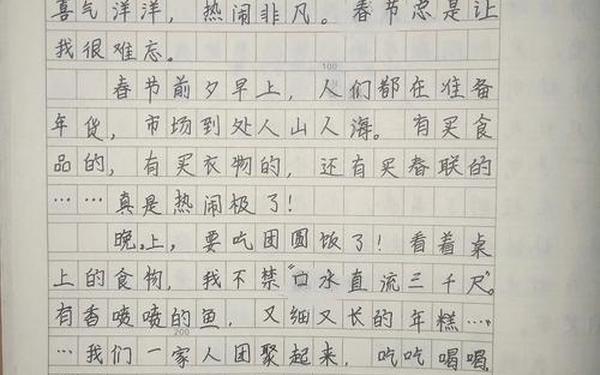 喜气洋洋，热闹非凡。春节总是让
我很难忘。
100
春节前夕早上，人们都在准备
年货，市场到处人山人海。有买食
品的，有买衣物的，还有买春联的
……真是热闹极了！
晚上，要吃团圆饭了！看着桌
上的食物，我不禁“口水直流三千尺”。
有香喷喷的鱼，又细又长的年糕…
200
…我们一家人团聚起来，吃吃喝喝